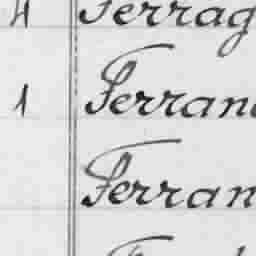 4 Ferrag
1 Ferran
Ferran